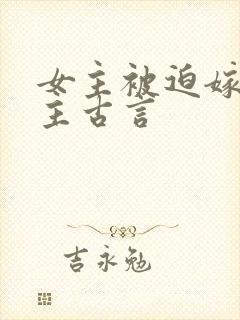 女主被迫嫁
主古言
吉永勉